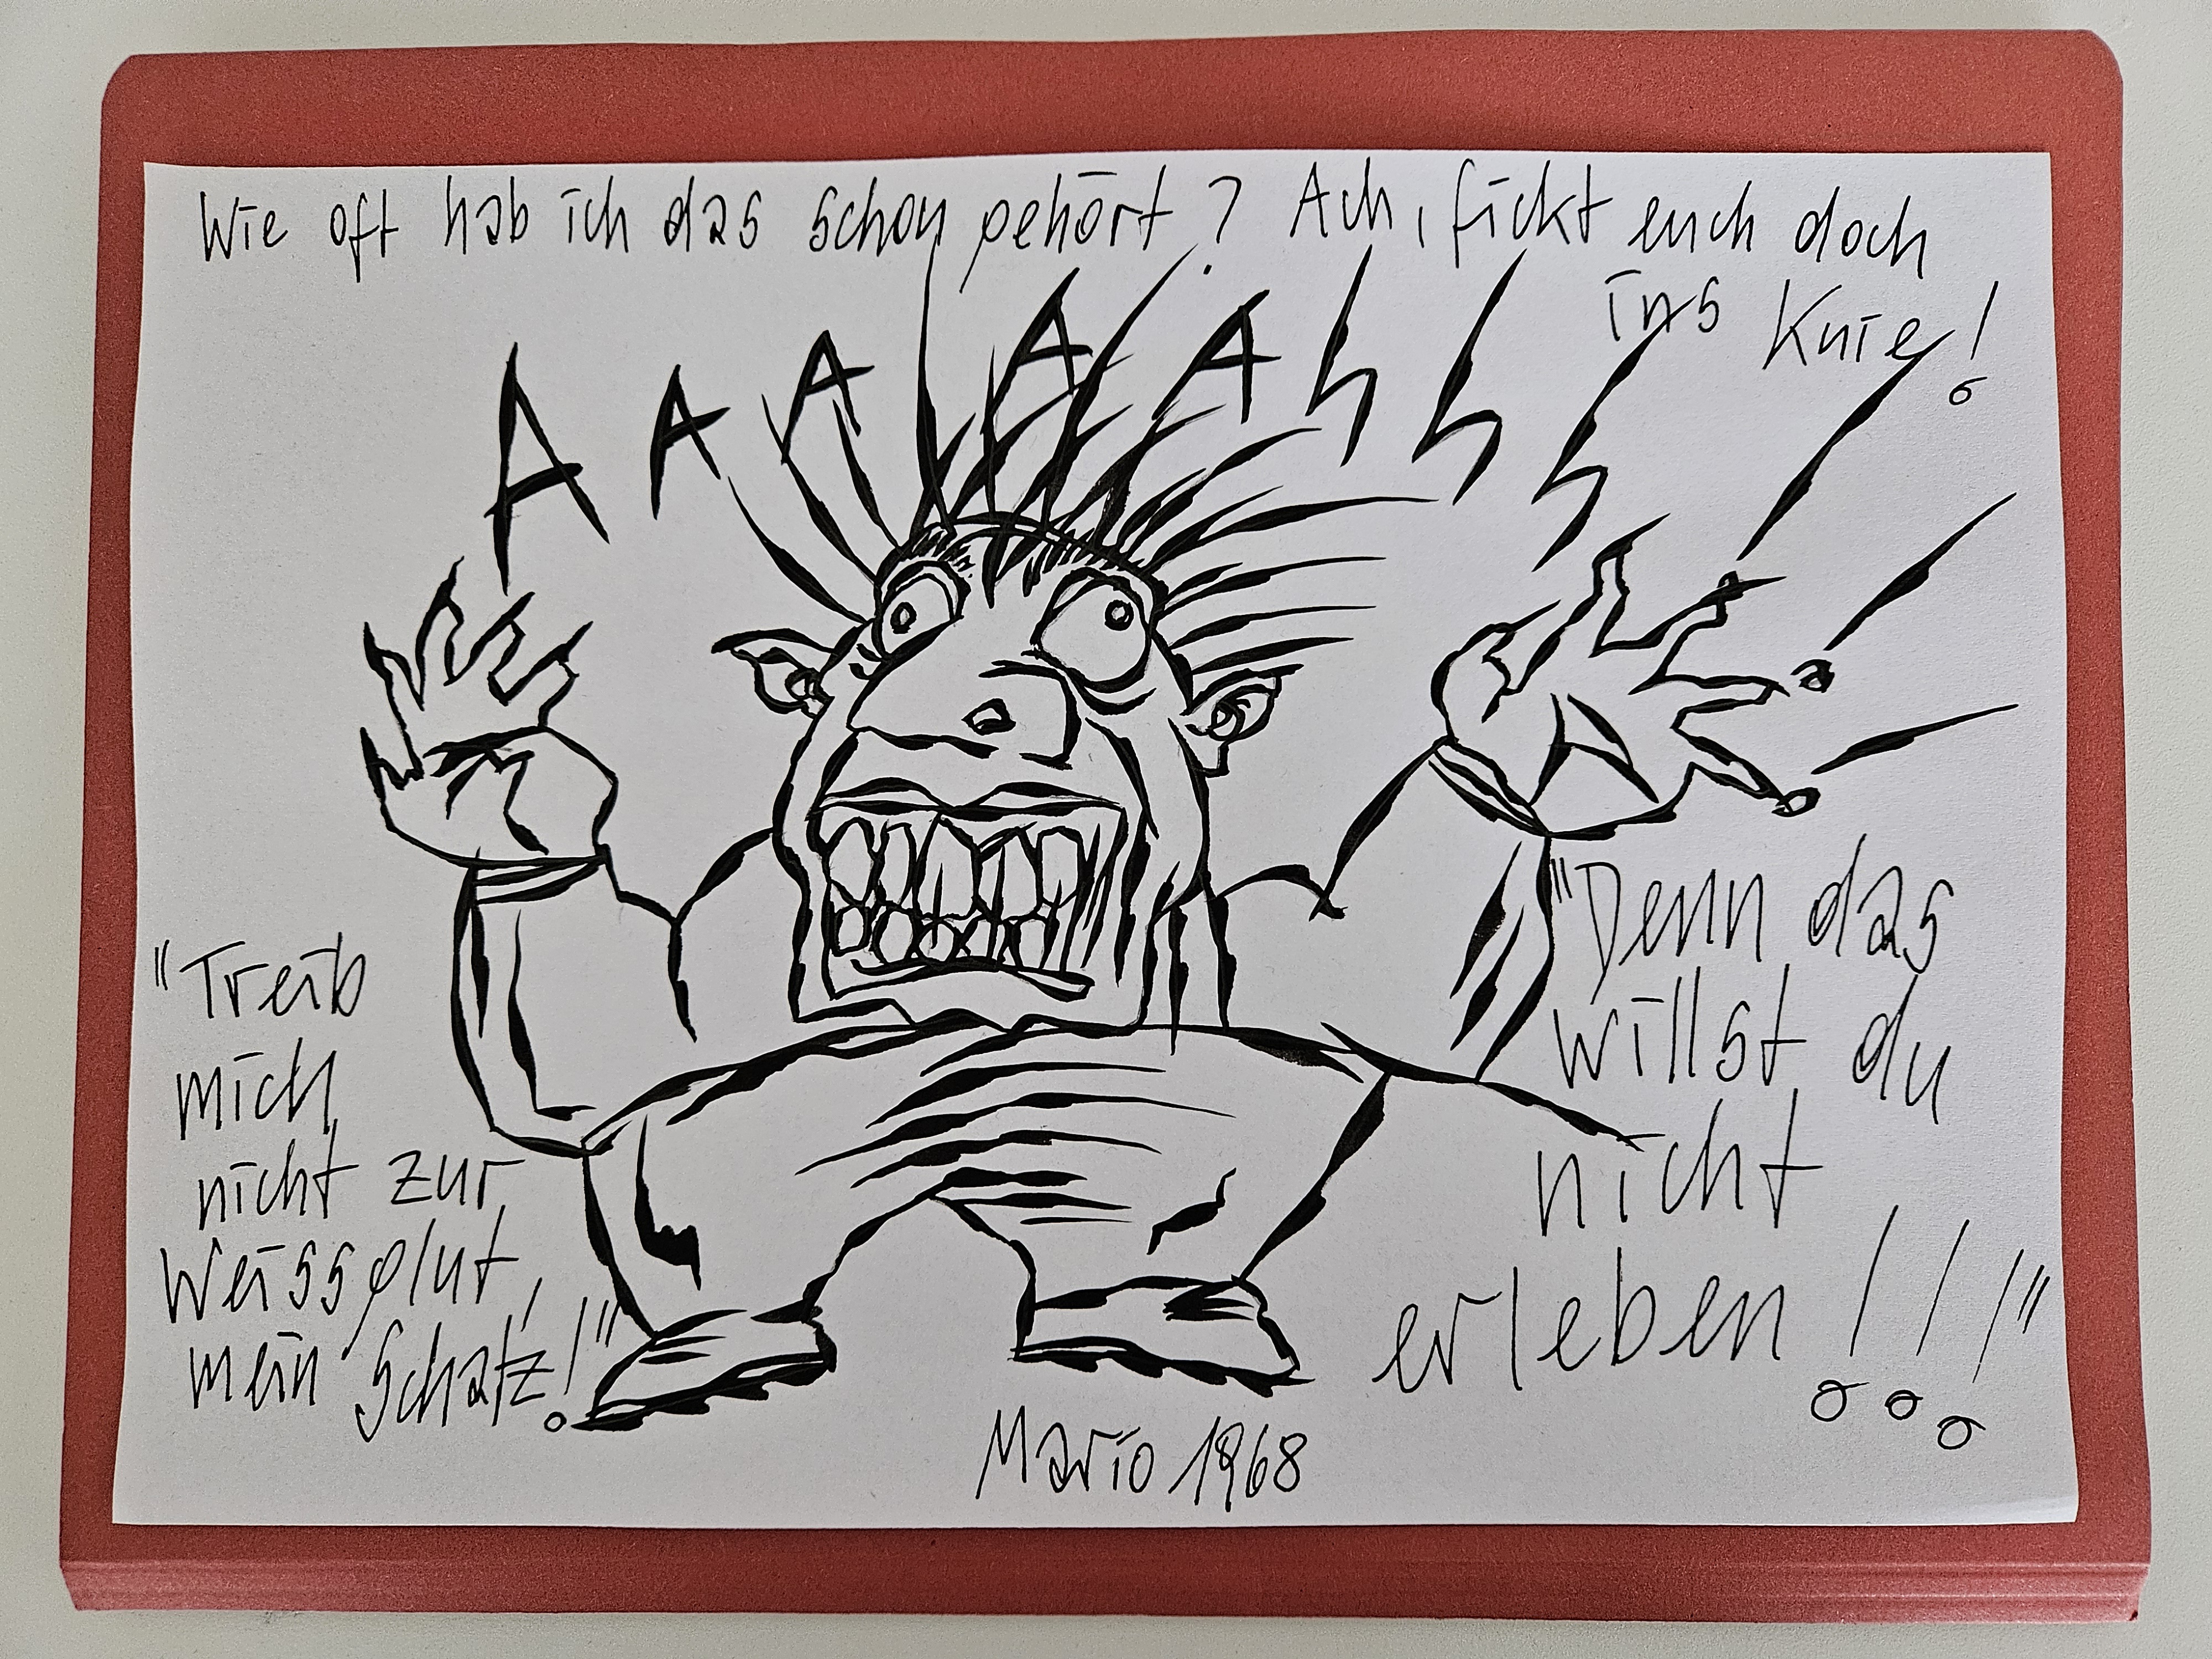 Wie oft hab ich das schon gehört? Ach, fickt euch doch
ins Knie!
AAAAAhhh!!!
"Treib
mich
nicht zur
Weissglut,
mein Schatz!"
"Denn das
willst du
nicht
erleben!!!"
Mario 1968